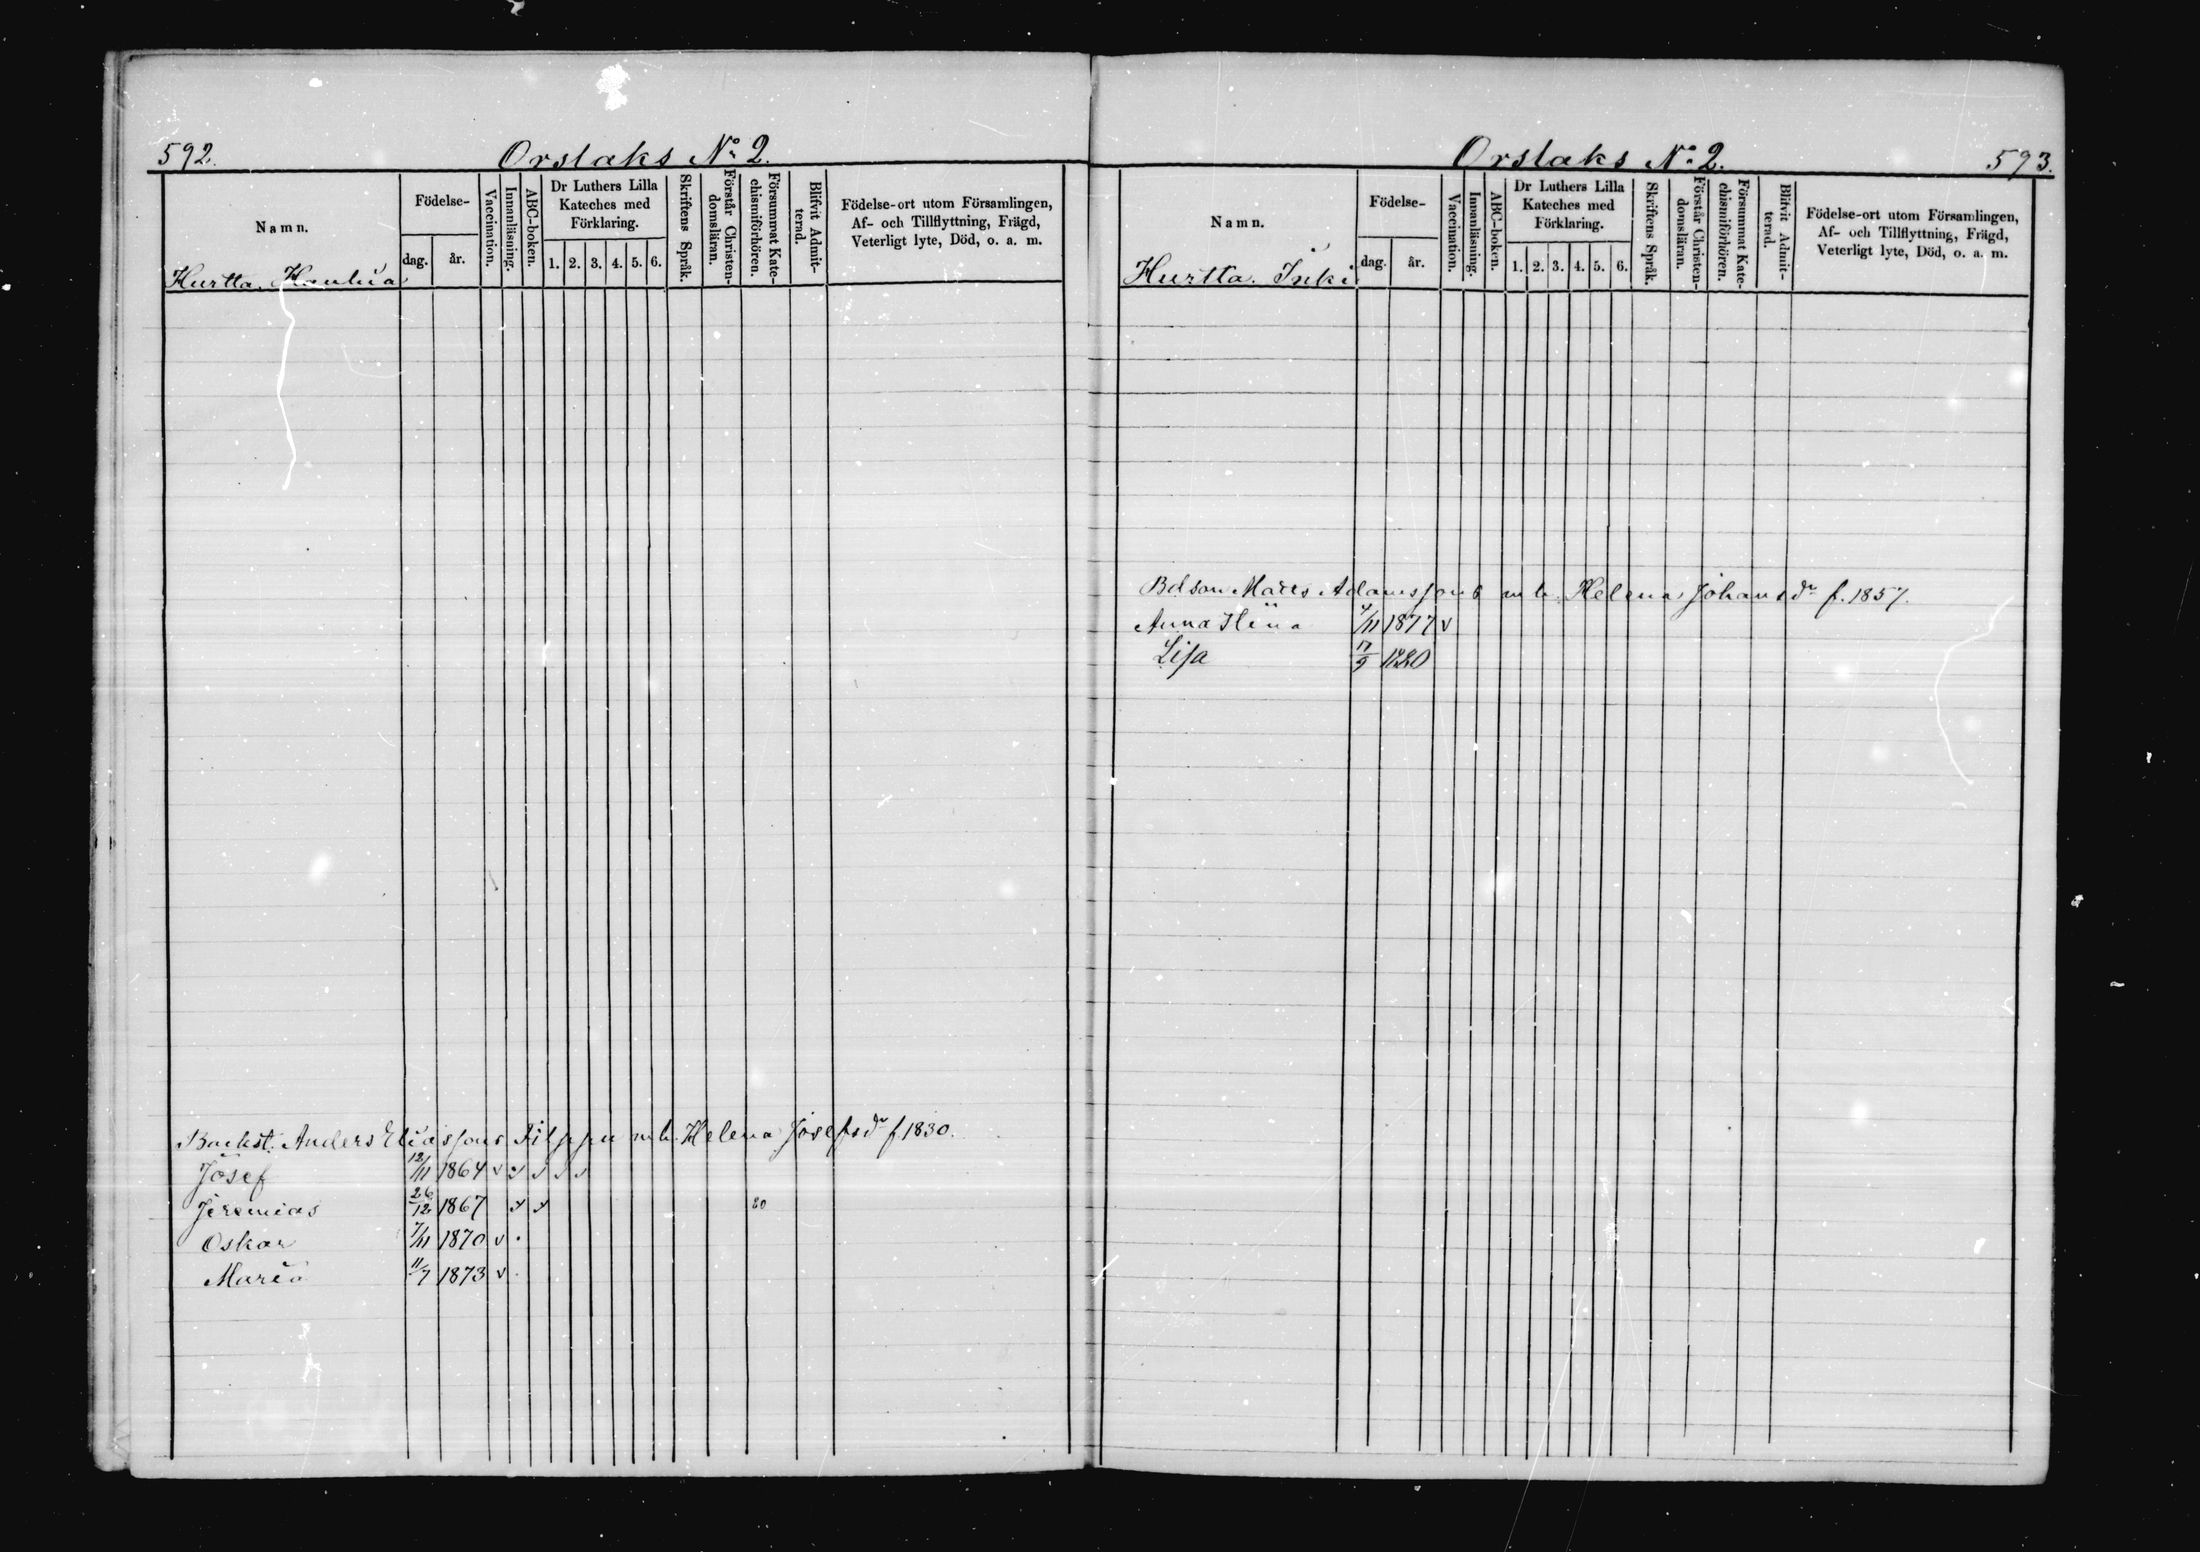 592.
Orslaks № 2.
Namn.
Födelse-
dag.
år.
Vaccination.
Innanläsning.
ABC-boken.
Dr Luthers Lilla
Kateches med
Förklaring.
1. 2. 3. 4. 5. 6.
Skriftens Språk.
Förstår Christen-
domsläran.
Försummat Kate-
chismiförhören.
Blifvit Admit-
terad.
Födelse-ort utom Församlingen,
Af- och Tillflyttning, Frägd,
Veterligt lyte, Död, o. a. m.
Hurtta
Backst. Anders Eliassons Filppu enk. Helena Josefsdr f. 1830.
Josef 12/11 1864 v
Jeremias 26/12 1867 80
Oskar 7/11 1870 v
Maria 11/7 1873 v
Orslaks № 2.
593.
Namn.
Födelse-
dag.
år.
Vaccination.
Innanläsning.
ABC-boken.
Dr Luthers Lilla
Kateches med
Förklaring.
1. 2. 3. 4. 5. 6.
Skriftens Språk.
Förstår Christen-
domsläran.
Försummat Kate-
chismiförhören.
Blifvit Admit-
terad.
Födelse-ort utom Församlingen,
Af- och Tillflyttning, Frägd,
Veterligt lyte, Död, o. a. m.
Hurtta. Inki
Bdson Matts Adamssons enk. Helena Johansdr f. 1857.
Anna 4/11 1877 v
Lisa 17/9 1880